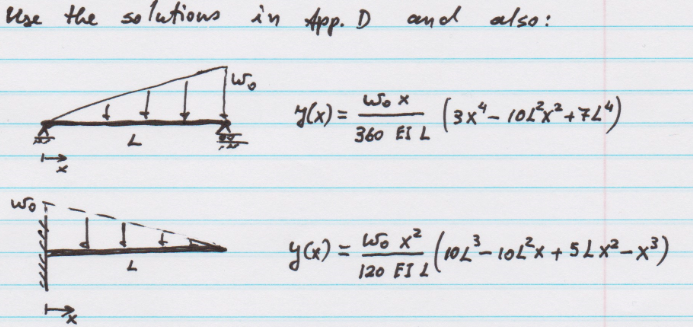 Use the solutions in App. D and also:
w₀
L
x
y(x) = w₀ x / 360 EI L (3x⁴ - 10L²x² + 7L⁴)
w₀
L
x
y(x) = w₀ x² / 120 EI L (10L³ - 10L²x + 5Lx² - x³)